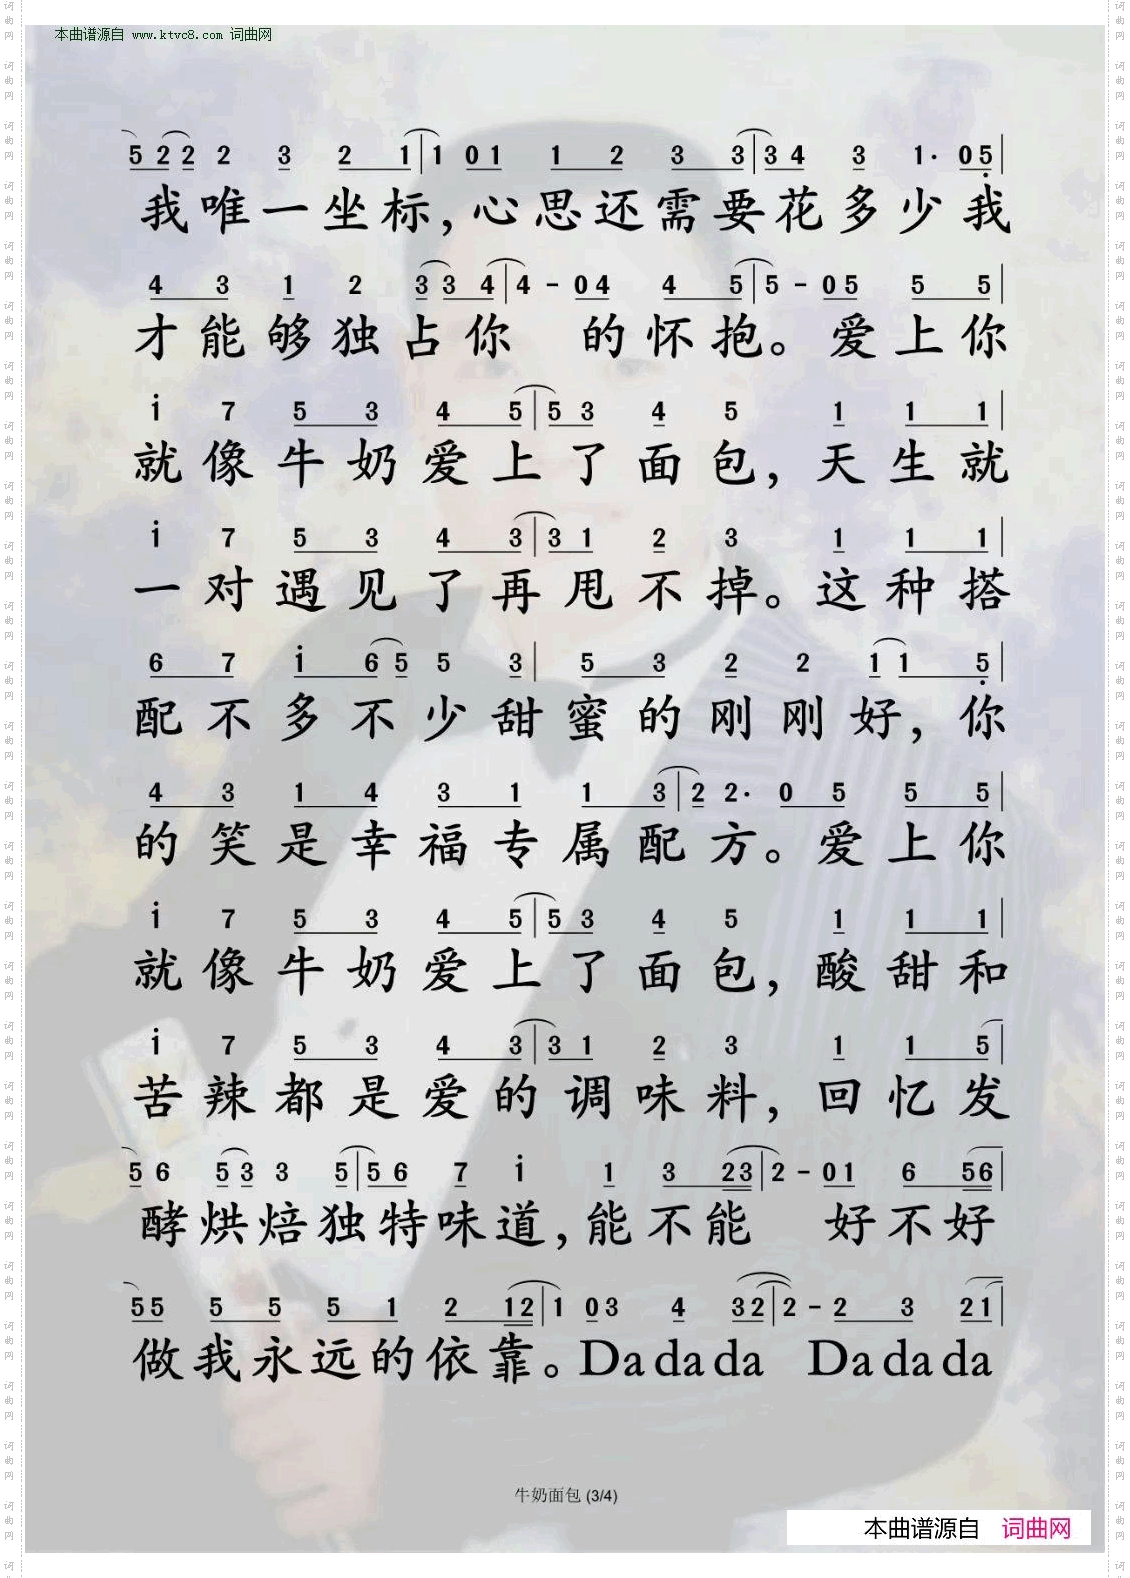 本曲谱源自 www.ktvc8.com 词曲网
5 2 2 2 3 2 1 | 1 0 1 1 2 3 3 | 3 4 3 1· 0 5 |
我唯一坐标,心思还需要花多少我
4 3 1 2 3 3 4 | 4 - 0 4 4 5 | 5 - 0 5 5 5 |
才能够独占你 的怀抱。爱上你
i 7 5 3 4 5 | 5 3 4 5 1 1 1 |
就像牛奶爱上了面包,天生就
i 7 5 3 4 3 | 3 1 2 3 1 1 1 |
一对遇见了再甩不掉。这种搭
6 7 i 6 5 5 3 | 5 3 2 2 1 1 5 |
配不多不少甜蜜的刚刚好,你
4 3 1 4 3 1 1 3 | 2 2· 0 5 5 5 |
的笑是幸福专属配方。爱上你
i 7 5 3 4 5 | 5 3 4 5 1 1 1 |
就像牛奶爱上了面包,酸甜和
i 7 5 3 4 3 | 3 1 2 3 1 1 5 |
苦辣都是爱的调味料,回忆发
5 6 5 3 3 5 | 5 6 7 i 1 3 2 3 | 2 - 0 1 6 5 6 |
酵烘焙独特味道,能不能 好不好
5 5 5 5 5 1 2 1 2 | 1 0 3 4 3 2 | 2 - 2 3 2 1 |
做我永远的依靠。Da da da Da da da
牛奶面包 (3/4)
本曲谱源自 词曲网